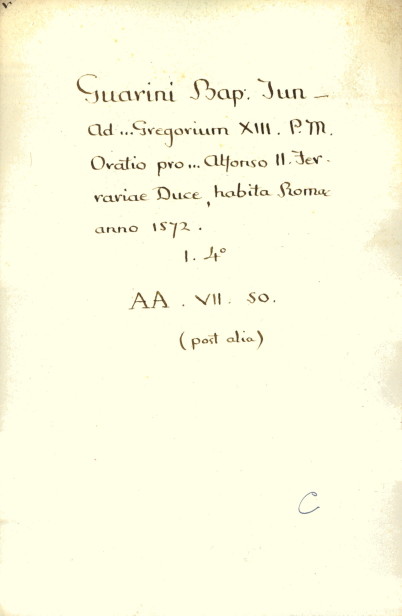 Guarini Bap. Jun —
Ad ... Gregorium XIII. P. M.
Oratio pro ... Alfonso II. Fer-
rariae Duce, habita Romae
anno 1572.
1. 4°
AA . VII . 50.
(post alia)
C